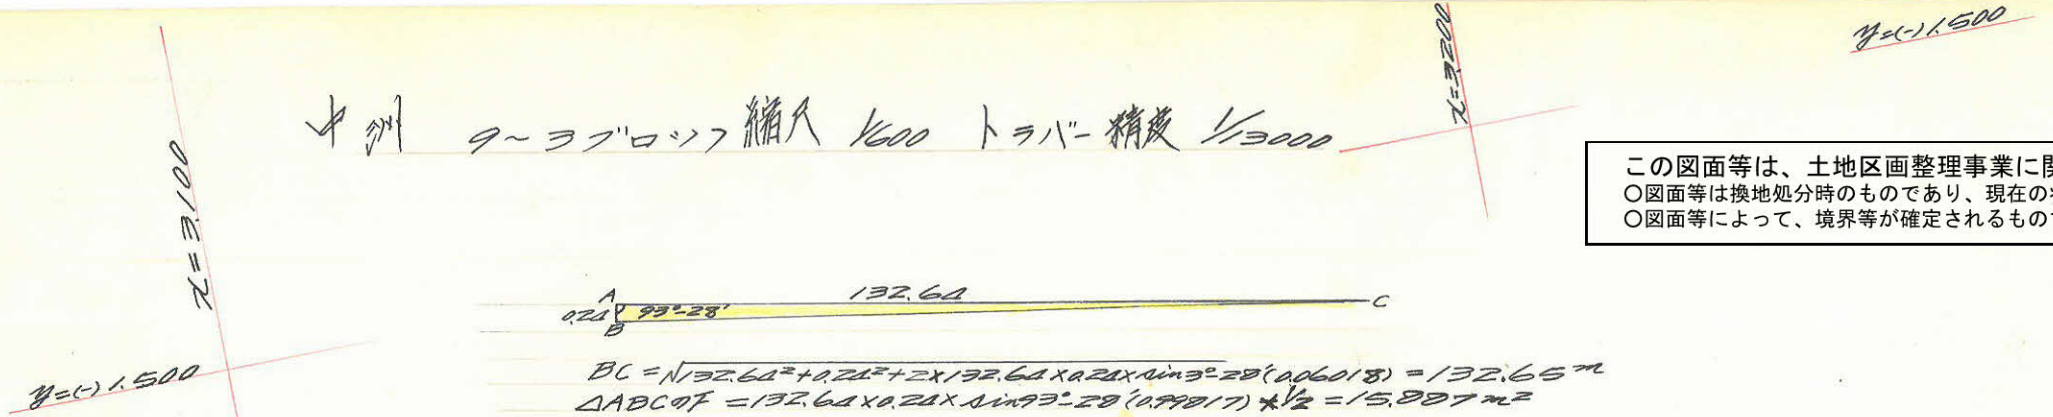 y=(-)1.500
x=3.200
中洲 9~3ブロック 縮尺 1/600 トラバー精度 1/3000
x=3.100
この図面等は、土地区画整理事業に関
〇図面等は換地処分時のものであり、現在の
〇図面等によって、境界等が確定されるもので
A 132.64 C
0.24 93°-28'
B
BC=√132.64²+0.24²+2×132.64×0.24×sin3°-28'(0.06018) =132.65m
y=(-)1.500
△ABCのF =132.64×0.24×sin93°-28'(0.99817)×1/2 =15.887m²